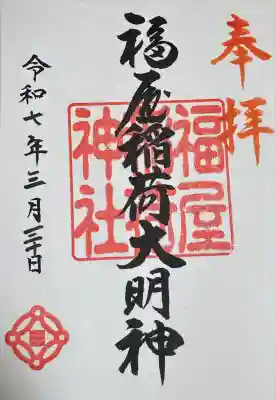 奉拝
福屋稲荷大明神
福屋
神社
令和七年三月三十日